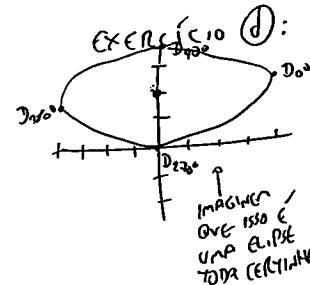 EXERCÍCIO (d):
D90°
D0°
D180°
D270°
IMAGINEM
QUE ISSO É
UMA ELIPSE
TODA CERTINHA